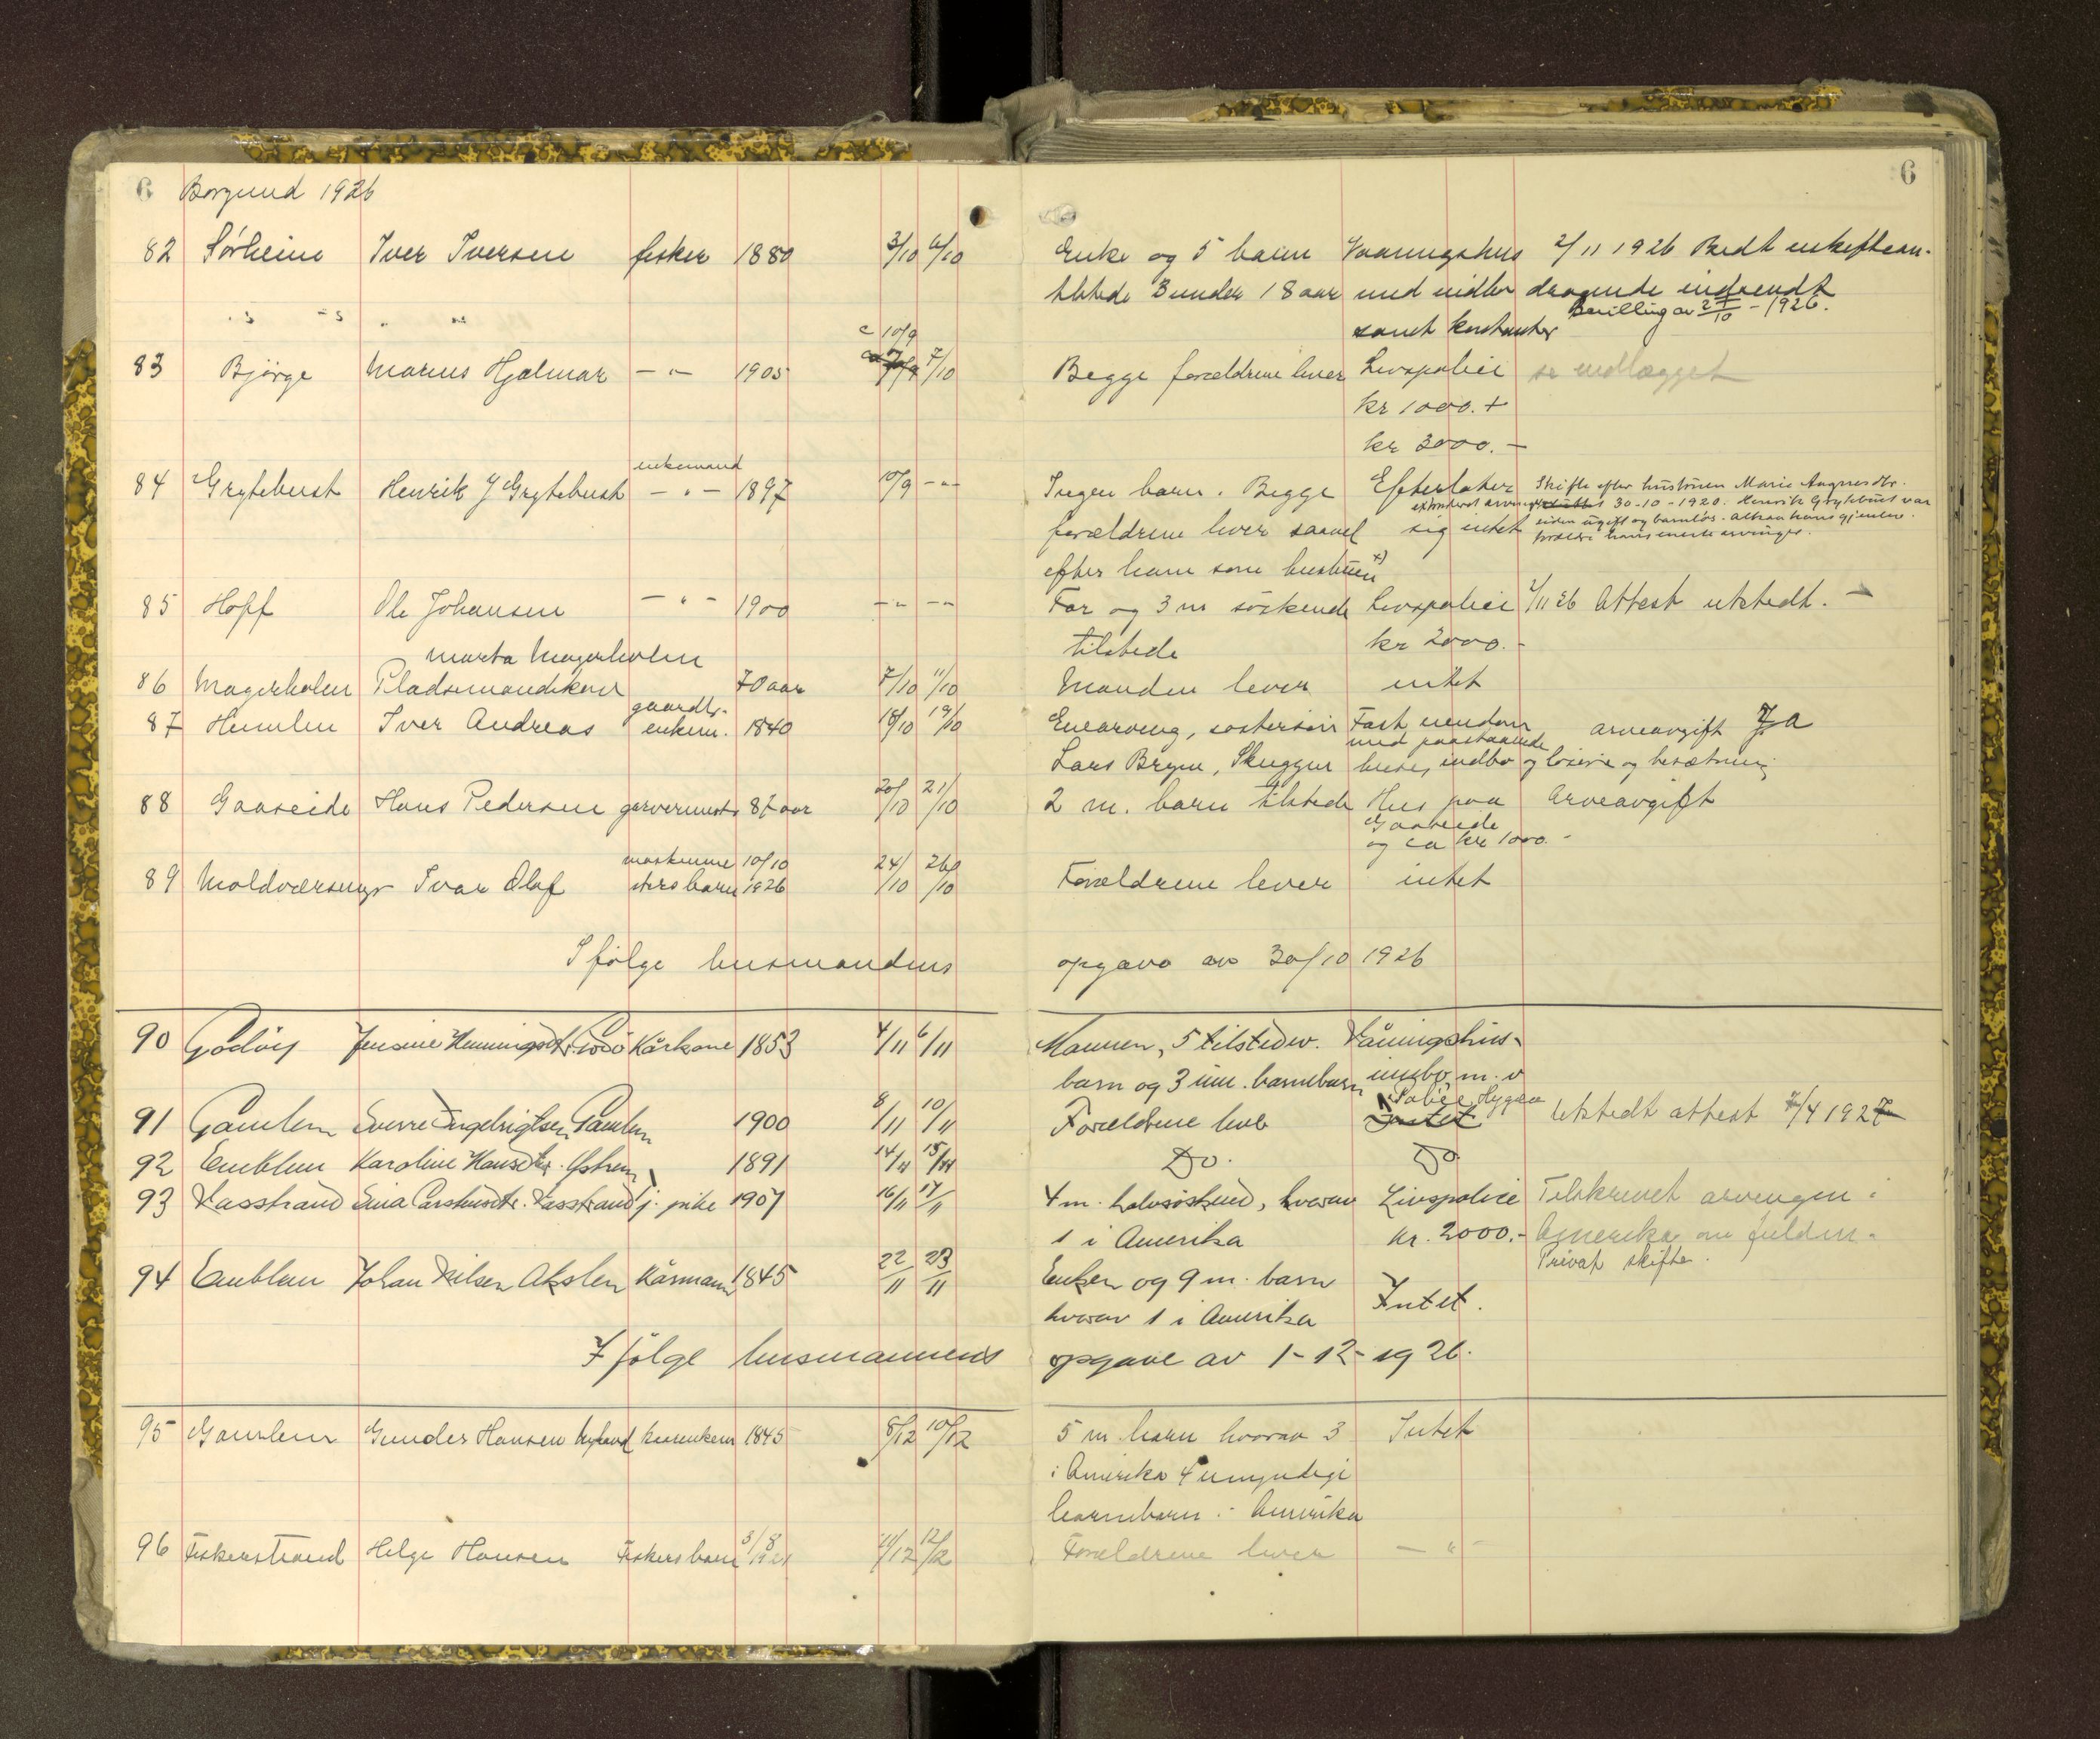 6 Borgund 1926
6
82 Sørheim Iver Iversen fisker 1880 3/10 6/10 Enke og 5 barn Vaaningshus 2/11 1926 Bedt enkeftean-
tilstede 3 under 18 aar med indbo dragende indsendt
samt kontanter Bevilling av 2/10 - 1926.
83 Bjørge Marius Hjalmar — " — 1905 c 10/9 7/10 Begge forældrene lever Livspolice se indlægget
kr 1000. +
kr 3000. —
enkemand
84 Grytebust Henrik J Grytebust — " — 1897 10/9 — " — Ingen barn. Begge Efterlater Skifte efter hustruen Marie Aagnesdtr.
30-10-1920. Henrik Grytebust var
forældrene lever saavel sig intet siden ugift og barnløs. Altsaa hans gjenlev.
forældre hans eneste arvinger.
efter ham som hustruen x)
85 Hoff Ole Johansen — " — 1900 — " — — " — Far og 3 m søskende Livspolice 2/11 26 Attest utstedt. —
tilstede kr 2000.-
Marta Magerholm
86 Magerholm Pladsemandskone 70 aar 7/10 11/10 Manden lever intet
gaardbr.
87 Humlen Iver Andreas enkem. 1840 18/10 19/10 Enearving, søstersøn Fast eiendom arveavgift Ja
med paastaaende
Lars Brynn, Skuggen huse, indbo og løsøre og besætning
88 Gaaseide Hans Pedersen garvermester 87 aar 20/10 21/10 2 m. barn tilstede Hus paa Arveavgift
Gaaseide
og ca kr 1000.-
maskinme 10/10
89 Moldværsmyr Ivar Olaf sters barn 1926 24/10 26/10 Forældrene lever intet
Ifølge lensmandens opgave av 30/10 1926
90 Godøy Jensine Henningsdtr. Godø Kårkone 1853 4/11 6/11 Mannen, 5 tilstedev. Våningshus-
barn og 3 um. barnebarn innbo m. v
Police Hygea
91 Gamlem Sverre Ingebrigtsen Gamlem 1900 8/11 10/11 Foreldrene leve Intet Utstedt attest 7/4 1927
92 Emblem Karoline Hansdtr. Østrem 1891 14/11 15/11 Do. Do
93 Vasstrand Sina Carshusdtr. Vasstrand j. pike 1907 16/11 17/11 4 m. halvsøskend, hvorav Livspolice Tilskrevet arvingen i
1 i Amerika kr. 2000.- Amerika om fuldm.
Privat skifte.
94 Emblem Johan Nilsen Akslen Kårmann 1845 22/11 23/11 Enken og 9 m. barn
hvorav 1 i Amerika Intet.
Ifølge lensmannens opgave av 1-12-1926.
95 Gamlem Gunder Hansen Nyland kaarenkem 1845 8/12 10/12 5 m barn hvorav 3 Intet
i Amerika 4 umyndige
barnebarn i Amerika
96 Fiskerstrand Helge Hansen Fiskers barn 3/8 1921 11/12 12/12 Forældrene lever — " —